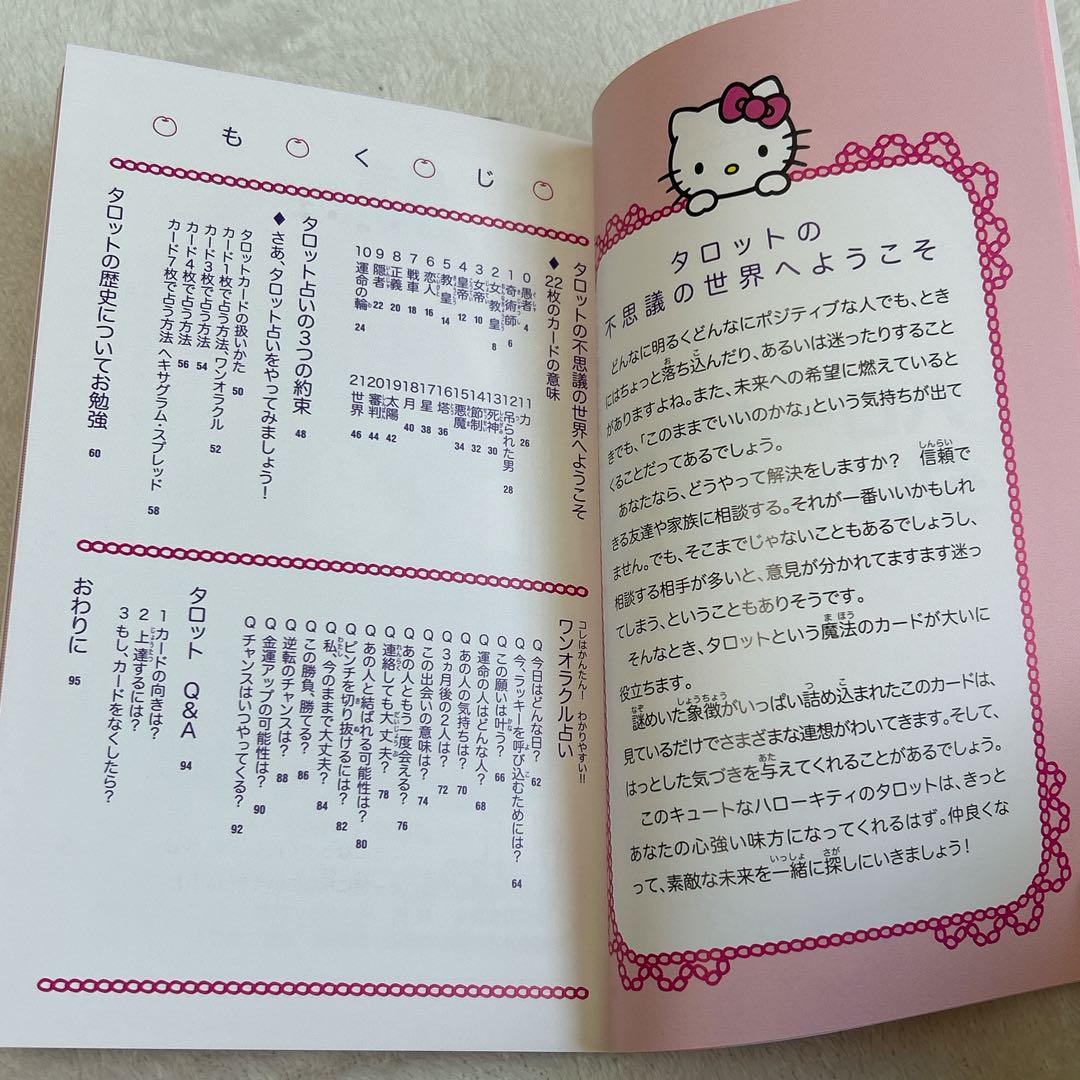 タロットの
不思議の世界へようこそ
どんなに明るくどんなにポジティブな人でも、とき
にはちょっと落ち込んだり、あるいは迷ったりすること
がありますよね。また、未来への希望に燃えていると
きでも、「このままでいいのかな」という気持ちが出て
くることだってあるでしょう。
あなたなら、どうやって解決をしますか？　信頼で
きる友達や家族に相談する。それが一番いいかもしれ
ません。でも、そこまでじゃないこともあるでしょうし、
相談する相手が多いと、意見が分かれてますます迷っ
てしまう、ということもありそうです。
そんなとき、タロットという魔法のカードが大いに
役立ちます。
謎めいた象徴がいっぱい詰め込まれたこのカードは、
見ているだけでさまざまな連想がわいてきます。そして、
はっとした気づきを与えてくれることがあるでしょう。
このキュートなハローキティのタロットは、きっと
あなたの心強い味方になってくれるはず。仲良くな
って、素敵な未来を一緒に探しにいきましょう！
もくじ
タロットの不思議の世界へようこそ
◆22枚のカードの意味
0 愚者 4
1 奇術師 6
2 女教皇 8
3 女帝 10
4 皇帝 12
5 教皇 14
6 恋人 16
7 戦車 18
8 正義 20
9 隠者 22
10 運命の輪 24
11 力 26
12 吊られた男 28
13 死神 30
14 節制 32
15 悪魔 34
16 塔 36
17 星 38
18 月 40
19 太陽 42
20 審判 44
21 世界 46
タロット占いの3つの約束 48
◆さあ、タロット占いをやってみましょう！
タロットカードの扱いかた 50
カード1枚で占う方法 ワンオラクル 52
カード3枚で占う方法 54
カード4枚で占う方法 56
カード7枚で占う方法 ヘキサグラム・スプレッド 58
タロットの歴史についてお勉強 60
コレはかんたん！　わかりやすい!!
ワンオラクル占い
Q 今日はどんな日？ 62
Q 今、ラッキーを呼び込むためには？ 64
Q この願いは叶う？ 66
Q 運命の人はどんな人？ 68
Q あの人の気持ちは？ 70
Q 3カ月後の2人は？ 72
Q この出会いの意味は？ 74
Q あの人ともう一度会える？ 76
Q 連絡しても大丈夫？ 78
Q あの人と結ばれる可能性は？ 80
Q ピンチを切り抜けるには？ 82
Q 私、今のままで大丈夫？ 84
Q この勝負、勝てる？ 86
Q 逆転のチャンスは？ 88
Q 金運アップの可能性は？ 90
Q チャンスはいつやってくる？ 92
タロット　Q&A 94
1 カードの向きは？
2 上達するには？
3 もし、カードをなくしたら？
おわりに 95